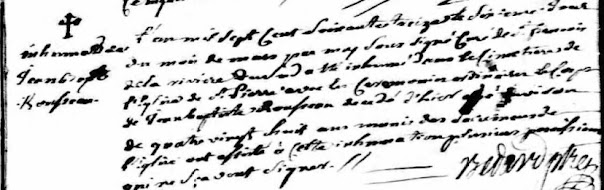 inhumation de
Jean bapte
Rousseau
L'an mil sept Cent Soixante et seize le sixieme Jour
du mois de mars par moy Sous signé Curé de st françois
de la riviere du sud a été inhumé dans le Cimetiere de
l'Eglise de St Pierre avec les Ceremonies ordinaires le Corps
de Jean baptiste Rousseau decedé d'hier agé d'environ
de quatre vingt huit ans munis des sacremens de
l'Eglise ont assisté à cette inhumation plusieurs paroissiens
qui ne sçavent signer. //
Bedard ptre